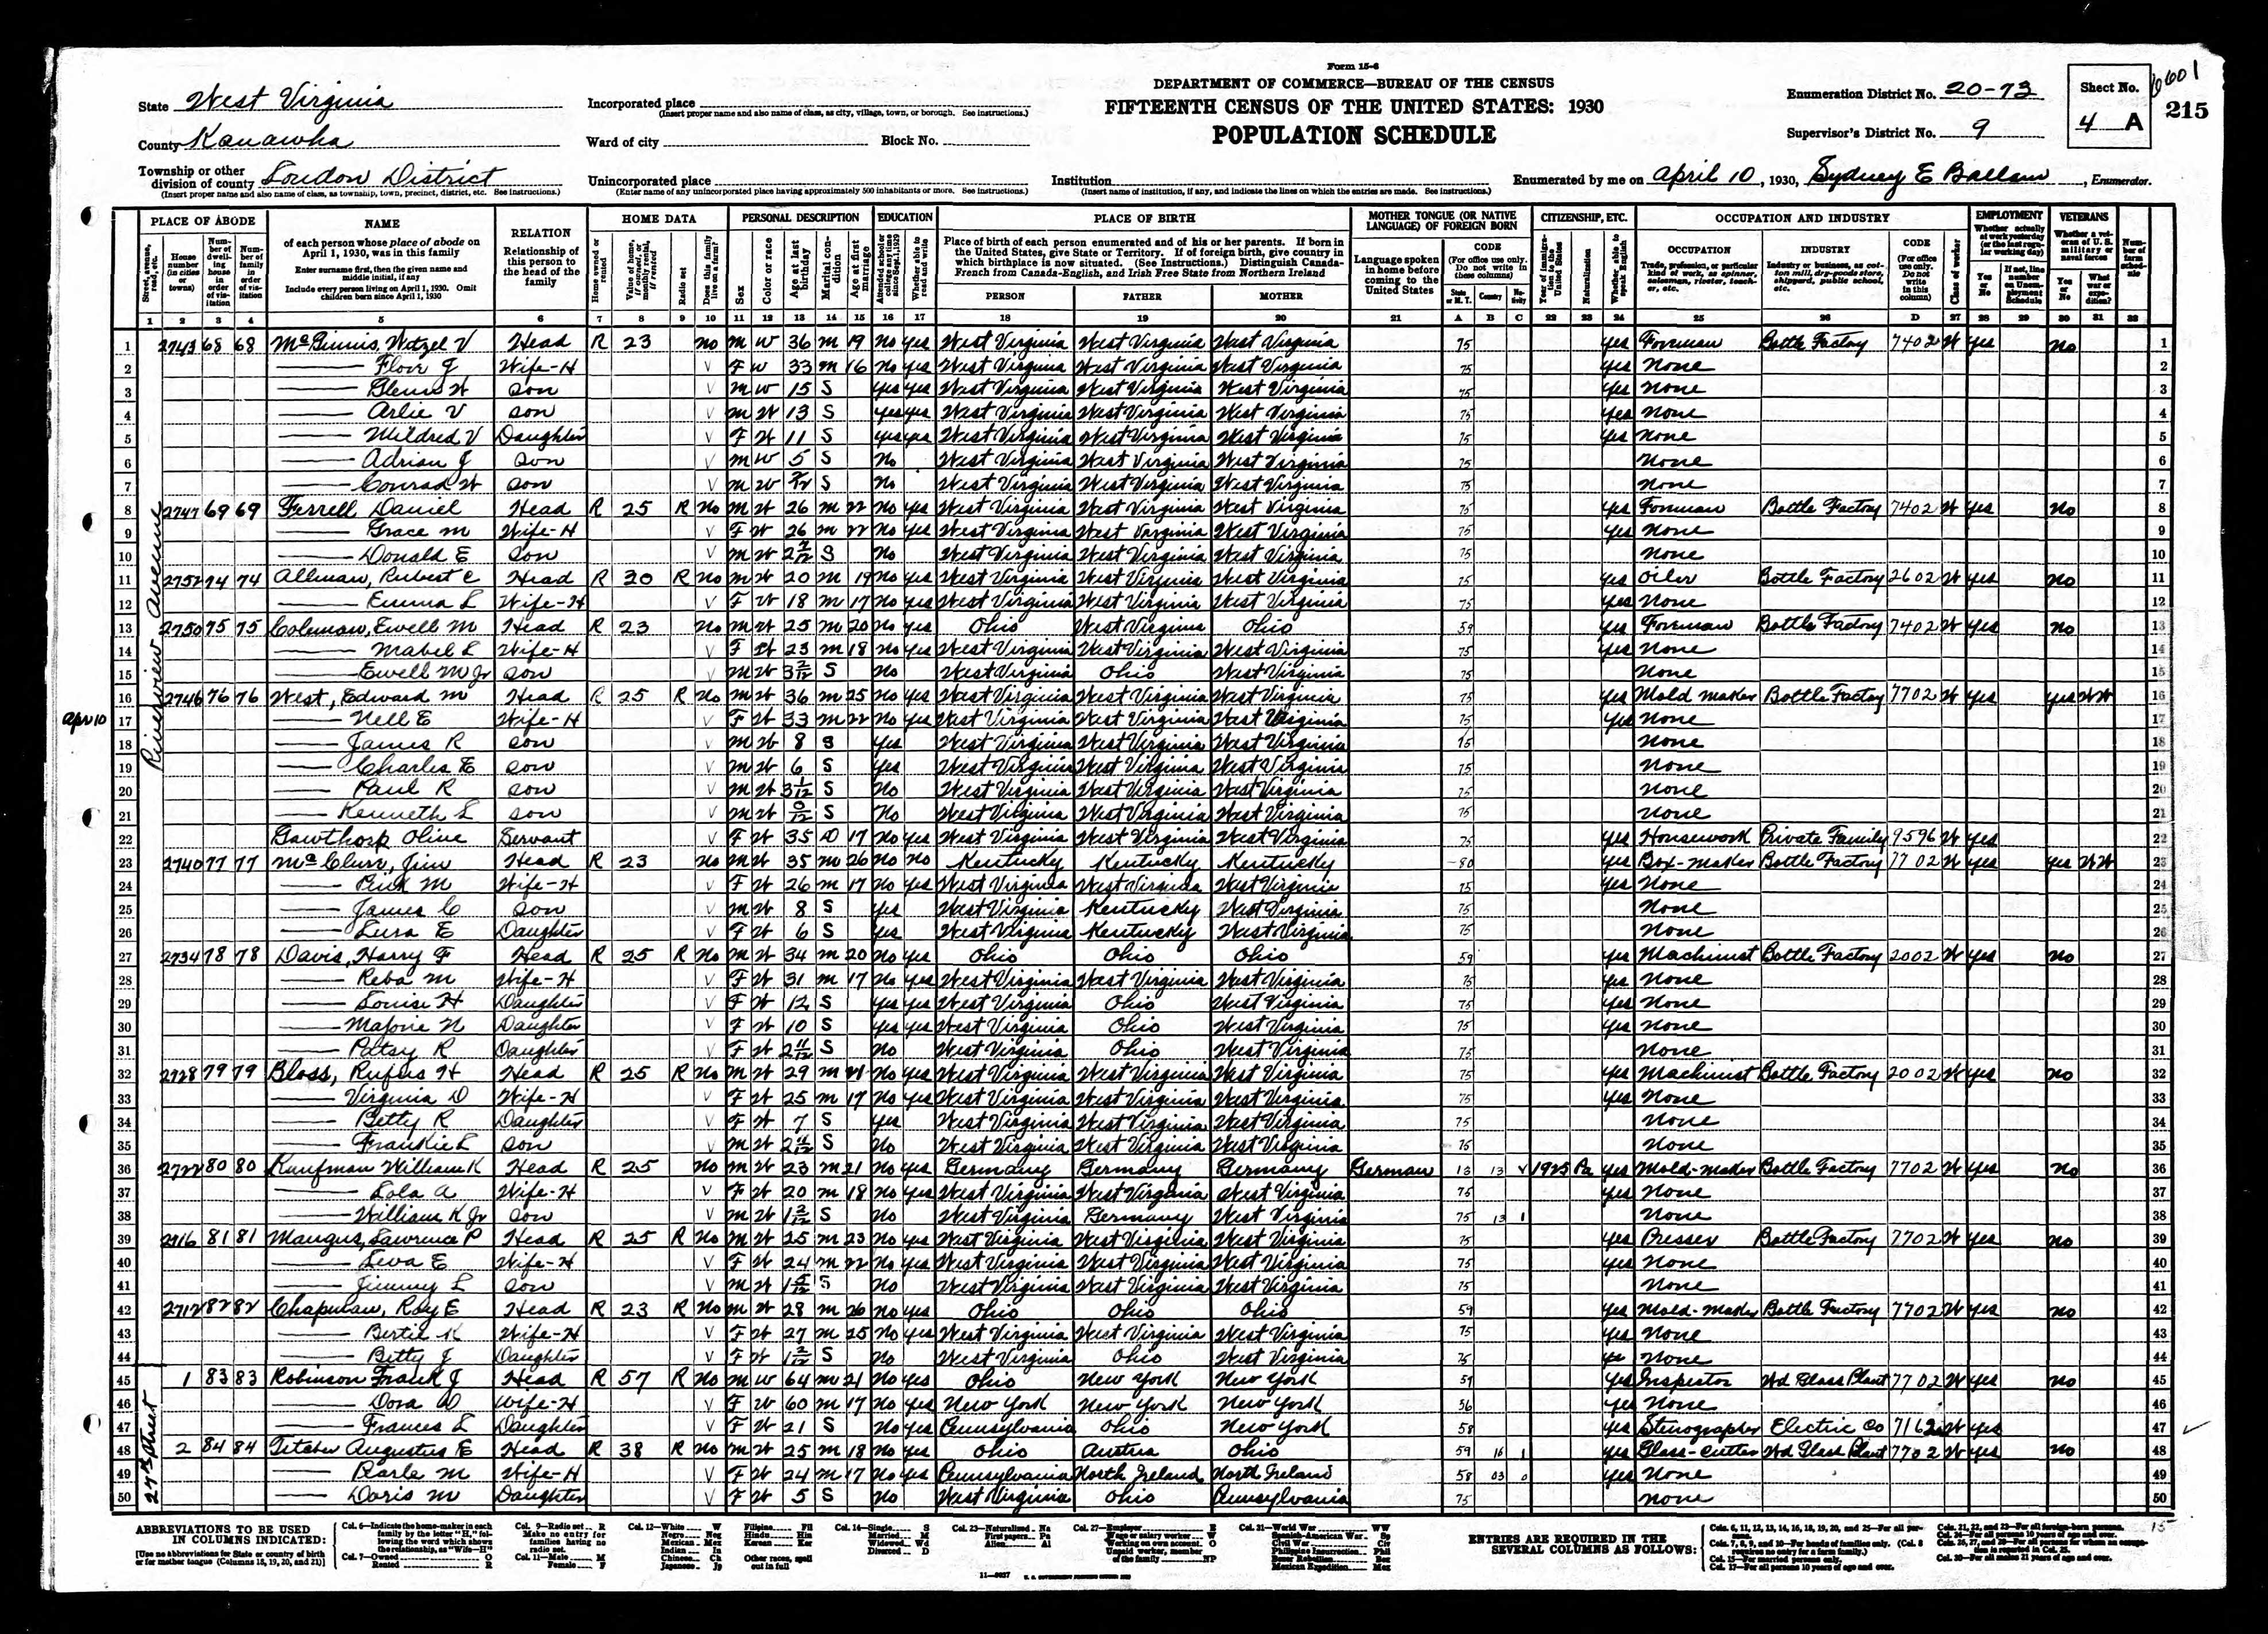 Form 15-6
DEPARTMENT OF COMMERCE—BUREAU OF THE CENSUS
FIFTEENTH CENSUS OF THE UNITED STATES: 1930
POPULATION SCHEDULE
State West Virginia
County Kanawha
Township or other division of county Loudon District
(Insert proper name and also name of class, as township, town, precinct, district, etc. See instructions.)
Incorporated place
(Insert proper name and also name of class, as city, village, town, or borough. See instructions.)
Ward of city Block No.
Unincorporated place
(Enter name of any unincorporated place having approximately 500 inhabitants or more. See instructions.)
Institution
(Insert name of institution, if any, and indicate the lines on which the entries are made. See instructions.)
Enumeration District No. 20-73
Supervisor's District No. 9
Sheet No. 4 A
215
Enumerated by me on April 10, 1930, Sydney E , Enumerator.
PLACE OF ABODE NAME RELATION HOME DATA PERSONAL DESCRIPTION EDUCATION PLACE OF BIRTH MOTHER TONGUE (OR NATIVE LANGUAGE) OF FOREIGN BORN CITIZENSHIP, ETC. OCCUPATION AND INDUSTRY EMPLOYMENT VETERANS
Riverview Avenue
Apr 10
1 2743 68 68 McGinnis, Wetzel V Head R 23 no M W 36 M 19 no yes West Virginia West Virginia West Virginia 75 yes Foreman Bottle Factory 7402 W yes no
2 Flora J Wife-H V F W 33 M 16 no yes West Virginia West Virginia West Virginia 75 yes None
3 Glenn W Son V M W 15 S yes yes West Virginia West Virginia West Virginia 75 yes None
4 Arlie V Son V M W 13 S yes yes West Virginia West Virginia West Virginia 75 yes None
5 Mildred V Daughter V F W 11 S yes yes West Virginia West Virginia West Virginia 75 yes None
6 Adrian J Son V M W 5 S no West Virginia West Virginia West Virginia 75 None
7 Conrad W Son V M W 2/12 S no West Virginia West Virginia West Virginia 75 None
8 2747 69 69 Ferrell Daniel Head R 25 R no M W 26 M 22 no yes West Virginia West Virginia West Virginia 75 yes Foreman Bottle Factory 7402 W yes no
9 Grace M Wife-H V F W 26 M 22 no yes West Virginia West Virginia West Virginia 75 yes None
10 Donald E Son V M W 2 2/12 S no West Virginia West Virginia West Virginia 75 None
11 2752 74 74 Allman, Rubert C Head R 30 R no M W 20 M 19 no yes West Virginia West Virginia West Virginia 75 yes Oiler Bottle Factory 2602 W yes no
12 Emma L Wife-H V F W 18 M 17 no yes West Virginia West Virginia West Virginia 75 yes None
13 2750 75 75 Coleman, Ewell M Head R 23 no M W 25 M 20 no yes Ohio West Virginia Ohio 59 yes Foreman Bottle Factory 7402 W yes no
14 Mabel L Wife-H V F W 23 M 18 no yes West Virginia West Virginia West Virginia 75 yes None
15 Ewell M Jr Son V M W 3 2/12 S no West Virginia Ohio West Virginia 75 None
16 2746 76 76 West, Edward M Head R 25 R no M W 36 M 25 no yes West Virginia West Virginia West Virginia 75 yes Mold maker Bottle Factory 7702 W yes yes WW
17 Nell E Wife-H V F W 33 M 22 no yes West Virginia West Virginia West Virginia 75 yes None
18 James R Son V M W 8 S yes West Virginia West Virginia West Virginia 75 None
19 Charles E Son V M W 6 S yes West Virginia West Virginia West Virginia 75 None
20 Paul R Son V M W 3 1/12 S no West Virginia West Virginia West Virginia 75 None
21 Kenneth L Son V M W 0/12 S no West Virginia West Virginia West Virginia 75 None
22 Gawthorp Olive Servant V F W 35 D 17 no yes West Virginia West Virginia West Virginia 75 yes Housework Private Family 9596 W yes
23 2740 77 77 McClure, Jim Head R 23 no M W 35 M 26 no no Kentucky Kentucky Kentucky 80 yes Box-maker Bottle Factory 7702 W yes yes WW
24 M Wife-H V F W 26 M 17 no yes West Virginia West Virginia West Virginia 75 yes None
25 James C Son V M W 8 S yes West Virginia Kentucky West Virginia 75 None
26 Lura E Daughter V F W 6 S yes West Virginia Kentucky West Virginia 75 None
27 2734 78 78 Davis, Harry F Head R 25 R no M W 34 M 20 no yes Ohio Ohio Ohio 59 yes Machinist Bottle Factory 2002 W yes no
28 Reba M Wife-H V F W 31 M 17 no yes West Virginia West Virginia West Virginia 75 yes None
29 Louise H Daughter V F W 12 S yes yes West Virginia Ohio West Virginia 75 yes None
30 Majorie N Daughter V F W 10 S yes yes West Virginia Ohio West Virginia 75 yes None
31 Patsy R Daughter V F W 2 11/12 S no West Virginia Ohio West Virginia 75 None
32 2728 79 79 Bloss, Rufus H Head R 25 R no M W 29 M 21 no yes West Virginia West Virginia West Virginia 75 yes Machinist Bottle Factory 2002 W yes no
33 Virginia D Wife-H V F W 25 M 17 no yes West Virginia West Virginia West Virginia 75 yes None
34 Betty R Daughter V F W 7 S yes West Virginia West Virginia West Virginia 75 None
35 Frankie L Son V M W 2 11/12 S no West Virginia West Virginia West Virginia 75 None
36 2722 80 80 Kaufman William K Head R 25 no M W 23 M 21 no yes Germany Germany Germany German 13 13 V 1925 Pa yes Mold-maker Bottle Factory 7702 W yes no
37 Lola A Wife-H V F W 20 M 18 no yes West Virginia West Virginia West Virginia 75 yes None
38 William K Jr Son V M W 1 2/12 S no West Virginia Germany West Virginia 75 13 1 None
39 2716 81 81 Maugus, Lawrence P Head R 25 R no M W 25 M 23 no yes West Virginia West Virginia West Virginia 75 yes Presser Bottle Factory 7702 W yes no
40 Leva E Wife-H V F W 24 M 22 no yes West Virginia West Virginia West Virginia 75 yes None
41 Jimmy L Son V M W 1 5/12 S no West Virginia West Virginia West Virginia 75 None
42 2712 82 82 Chapman, Roy E Head R 23 R no M W 28 M 26 no yes Ohio Ohio Ohio 59 yes Mold-maker Bottle Factory 7702 W yes no
43 Bertie K Wife-H V F W 27 M 25 no yes West Virginia West Virginia West Virginia 75 yes None
44 Betty J Daughter V F W 1 2/12 S no West Virginia Ohio West Virginia 75 None
27th Street
45 1 83 83 Robinson Frank J Head R 57 R no M W 64 M 21 no yes Ohio New York New York 59 yes Inspector Wd Glass Plant 7702 W yes no
46 Dora D Wife-H V F W 60 M 17 no yes New York New York New York 56 yes None
47 Frances L Daughter V F W 21 S no yes Pennsylvania Ohio New York 58 yes Stenographer Electric Co 7162 W yes
48 2 84 84 Augustus E Head R 38 R no M W 25 M 18 no yes Ohio Austria Ohio 59 16 1 yes Glass-cutter Wd Glass Plant 7702 W yes no
49 M Wife-H V F W 24 M 17 no yes Pennsylvania North Ireland North Ireland 58 03 0 yes None
50 Doris M Daughter V F W 5 S no West Virginia Ohio Pennsylvania 75 None
ABBREVIATIONS TO BE USED IN COLUMNS INDICATED:
ENTRIES ARE REQUIRED IN THE SEVERAL COLUMNS AS FOLLOWS: